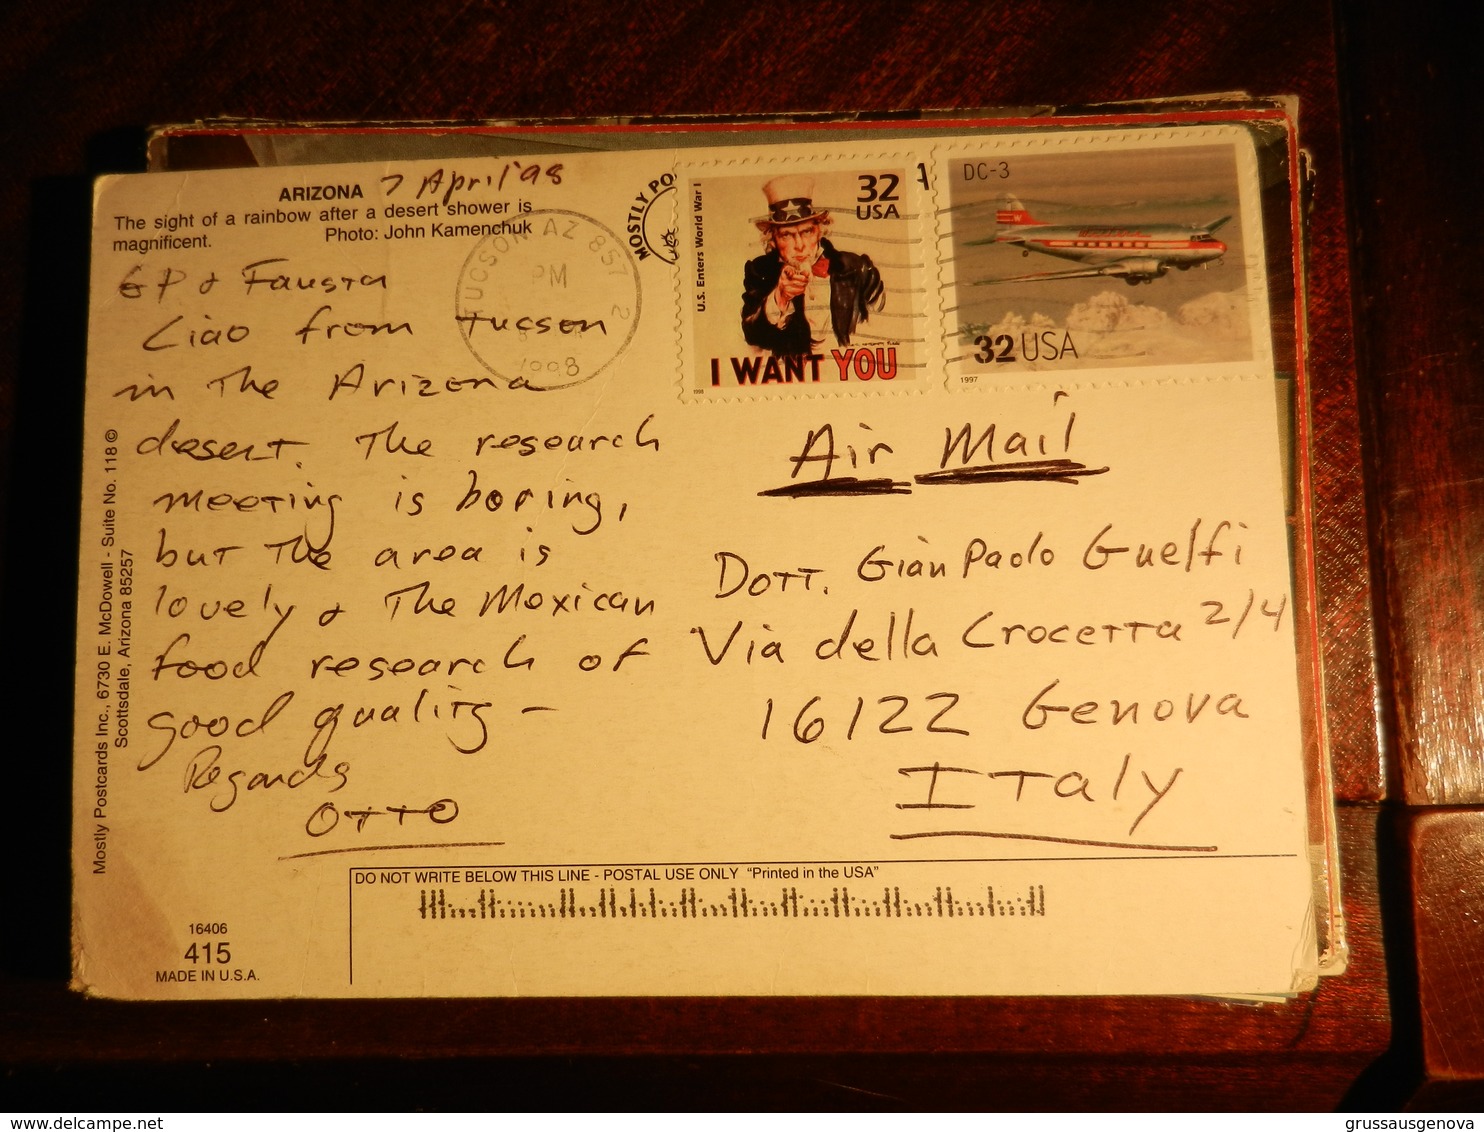 ARIZONA 7 April '98
The sight of a rainbow after a desert shower is
magnificent. Photo: John Kamenchuk
GP & Fausta
Ciao from Tucson
in the Arizona
desert. The research
meeting is boring,
but the area is
lovely & the Mexican
food research of
good quality -
Regards
OTTO
Mostly Postcards Inc., 6730 E. McDowell - Suite No. 118 ©
Scottsdale, Arizona 85257
TUCSON AZ 857 2
PM
1998
MOSTLY PO
U.S. Enters World War I
32
USA
I WANT YOU
1998
1
DC-3
32 USA
1997
Air Mail
Dott. Gian Paolo Guelfi
Via della Crocetta 2/4
16122 Genova
Italy
DO NOT WRITE BELOW THIS LINE - POSTAL USE ONLY "Printed in the USA"
16406
415
MADE IN U.S.A.
www.delcampe.net
grussausgenova